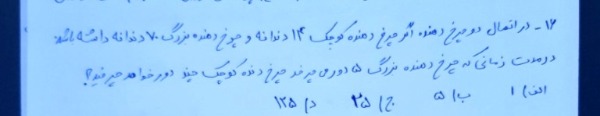 ۱۶- در اتصال دو چرخ دهنده اگر چرخ دهنده کوچک ۱۴ دندانه و چرخ دهنده بزرگ ۷۰ دندانه داشته باشد
در مدت زمانی که چرخ دهنده بزرگ ۵ دور می چرخد چرخ دنده کوچک چند دور خواهد چرخید؟
الف) ۱ ب) ۵ ج) ۲۵ د) ۱۲۵